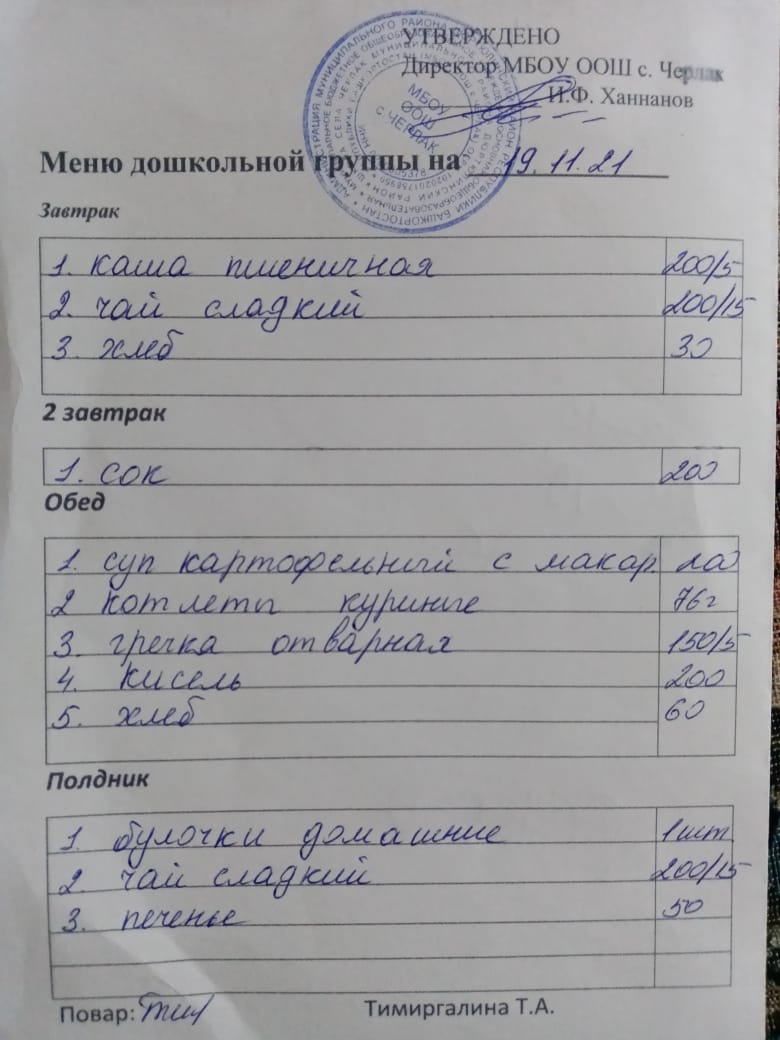 УТВЕРЖДЕНО
Директор МБОУ ООШ с. Черлак
И.Ф. Ханнанов
МБОУ
ООШ
с ЧЕРЛАК
Меню дошкольной группы на 19.11.21
Завтрак
1. каша пшеничная 200/5
2. чай сладкий 200/15
3. хлеб 30
2 завтрак
1. сок 200
Обед
1. суп картофельный с макар. 200
2 котлеты куриные 76г
3. гречка отварная 150/5
4. кисель 200
5. хлеб 60
Полдник
1. булочки домашние 1 шт
2. чай сладкий 200/15
3. печенье 50
Повар: Тимиргалина Т.А.